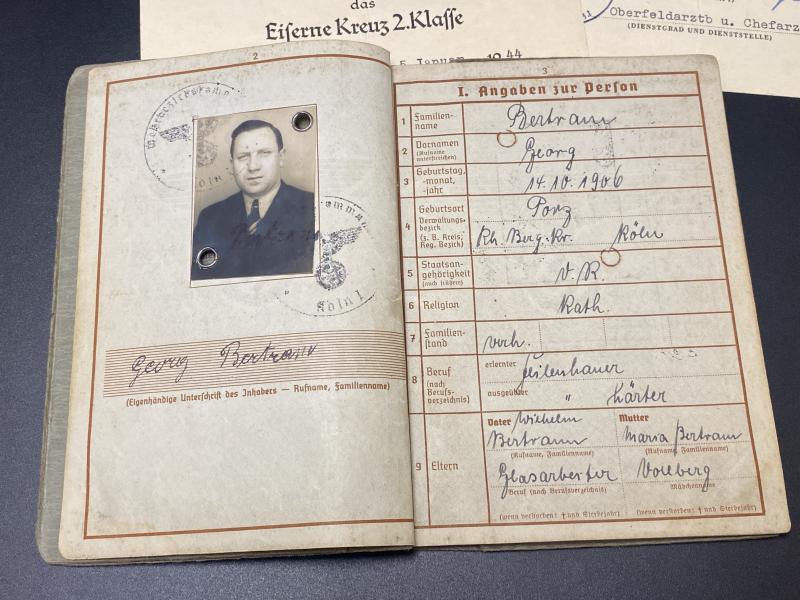 das
Eiserne Kreuz 2. Klasse
5. Januar 1944
Oberfeldarztb u. Chefarz
(DIENSTGRAD UND DIENSTSTELLE)
2
Köln I
Georg Bertram
(Eigenhändige Unterschrift des Inhabers — Rufname, Familienname)
3
I. Angaben zur Person
1 Familien-
name
Bertram
2 Vornamen
(Rufname
unterstreichen)
Georg
3 Geburtstag,
-monat,
-jahr
14.10.1906
4 Geburtsort
Verwaltungs-
bezirk
(z. B. Kreis,
Reg. Bezirk)
Porz
Rh. Berg. Kr. Köln
5 Staatsan-
gehörigkeit
(auch frühere)
D. R.
6 Religion
Kath.
7 Familien-
stand
verh.
8 Beruf
(nach
Berufs-
verzeichnis)
erlernter Feilenhauer
ausgeübter " Härter
9 Eltern
Vater Wilhelm
Bertram
(Rufname, Familienname)
Glasarbeiter
Beruf (nach Berufsverzeichnis)
(wenn verstorben: † und Sterbejahr)
Mutter
Maria Bertram
(Rufname, Familienname)
Vollberg
Mädchenname
(wenn verstorben: † und Sterbejahr)